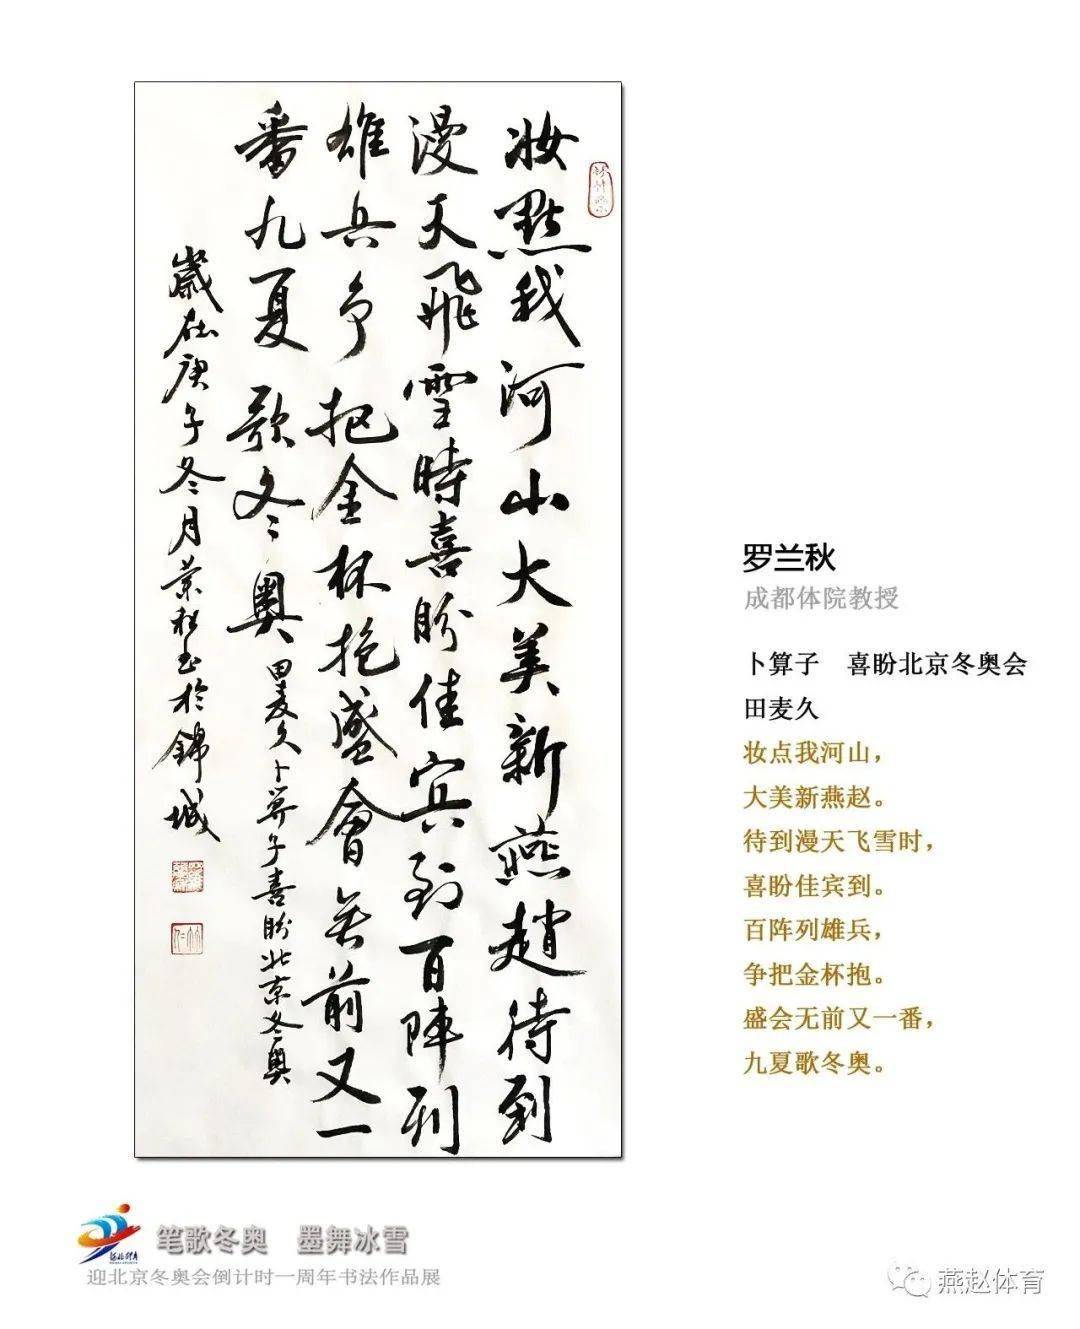 妝點我河山大美新燕趙待到
漫天飛雪時喜盼佳宾到百陣列
雄兵争把金杯抱盛會无前又一
番九夏歌冬奧
田麦久卜算子喜盼北京冬奥
歲在庚子冬月兰秋书於錦城
罗兰秋
成都体院教授
卜算子　喜盼北京冬奥会
田麦久
妆点我河山，
大美新燕赵。
待到漫天飞雪时，
喜盼佳宾到。
百阵列雄兵，
争把金杯抱。
盛会无前又一番，
九夏歌冬奥。
笔歌冬奥　墨舞冰雪
迎北京冬奥会倒计时一周年书法作品展
燕赵体育